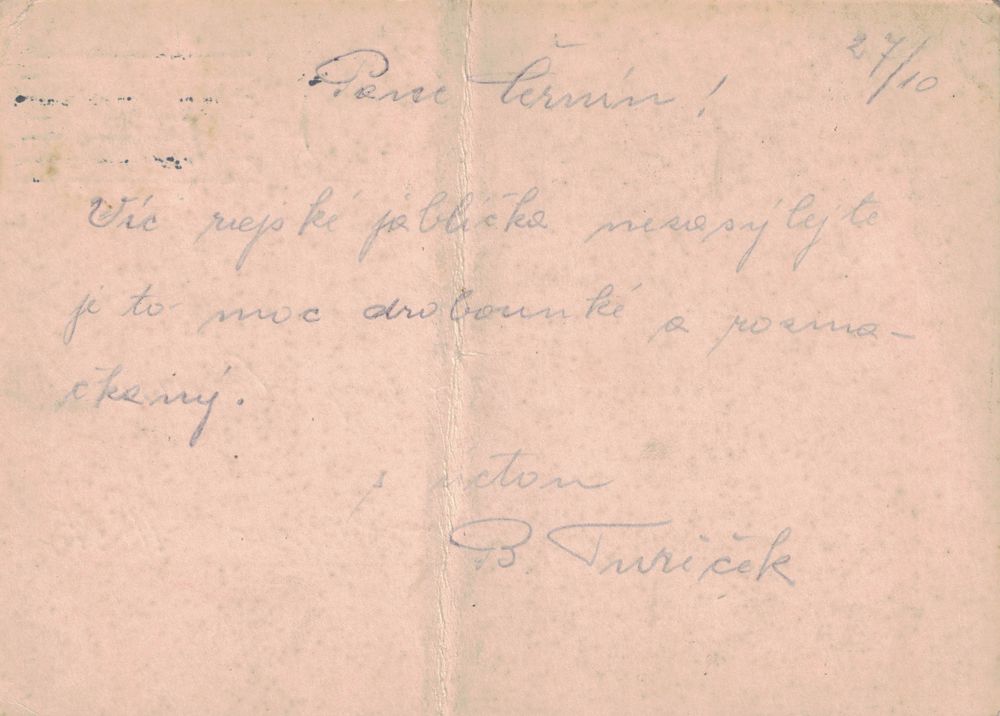 27/10
Pane Černín!
Víc rajské jablíčka nezasýlejte
je to moc drobounké a rozma-
čkaný.
s úctou
B. Turéček